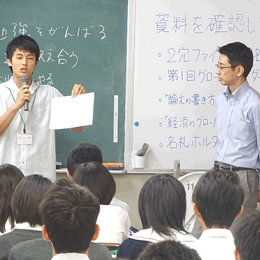 勉強をがんばる
え合う
やる
資料を確認し
○2穴ファイ
○第1回グロー
○"論文の書き方
○"経済のグロ-バ
○名札ホルダ